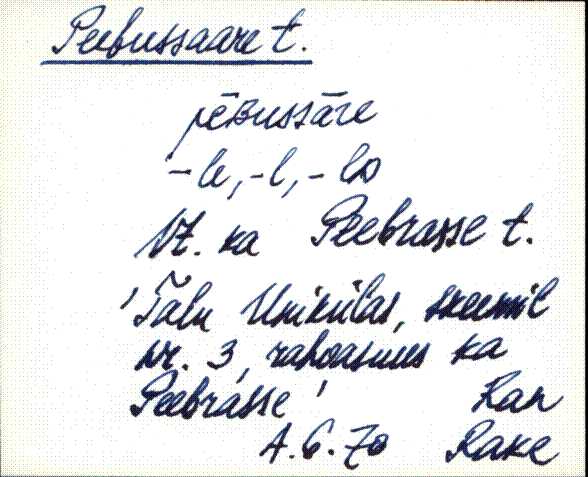 Peebussaare t.
pēʙussāre
-le, -l, -lᴅ
Vt. ka Peebrasse t.
'Talu Unikülas, skeemil
nr. 3, rahvasuus ka
Peebrasse' Ran
A.G. 70 Rake